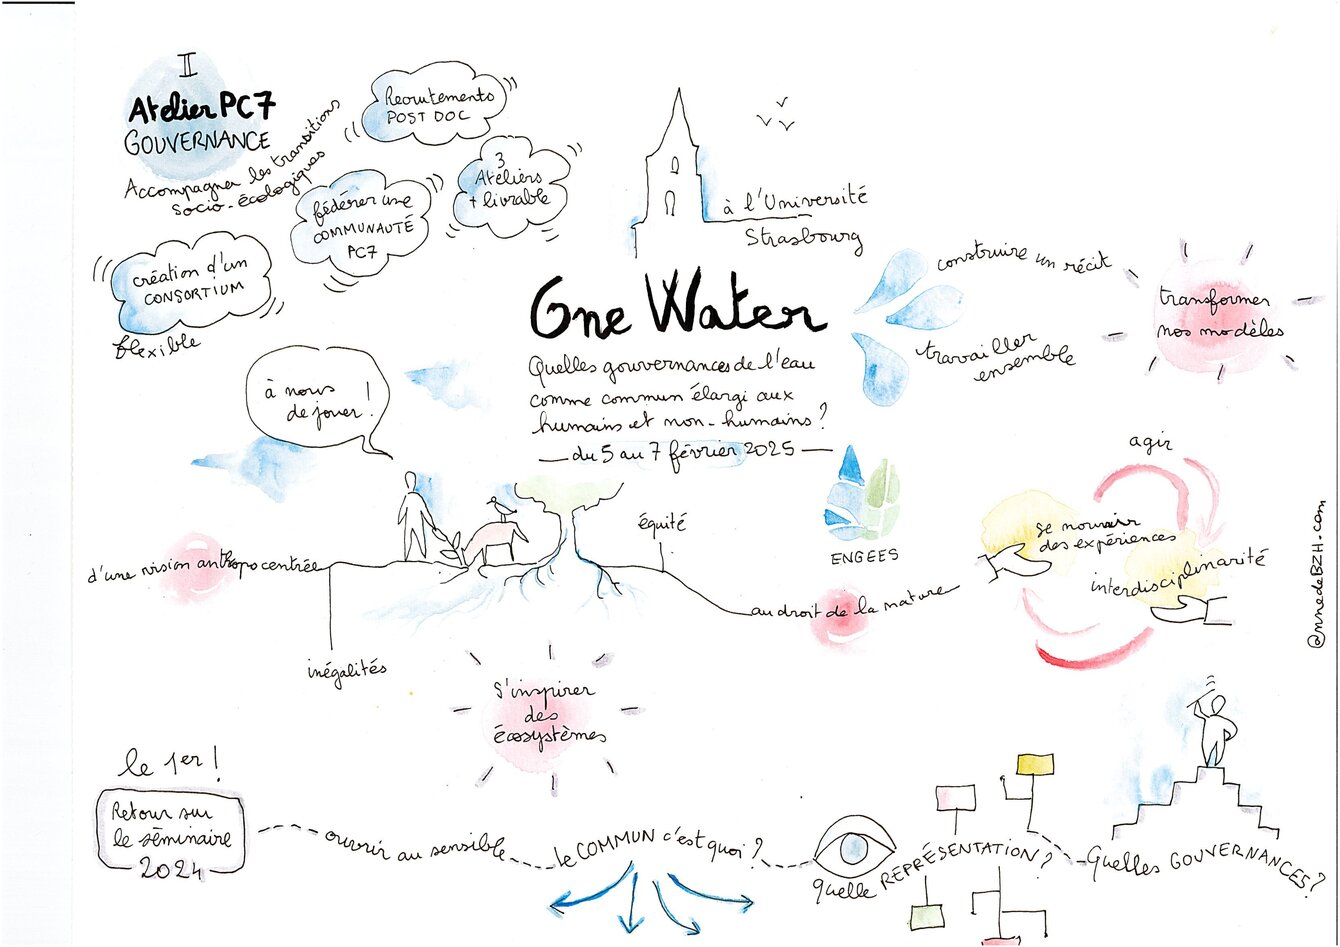 II
Atelier PC7
GOUVERNANCE
Accompagner les transitions
socio-écologiques
Recrutements
POST DOC
3
Ateliers
+ livrable
fédérer une
COMMUNAUTÉ
PC7
création d'un
CONSORTIUM
flexible
à l'Université
Strasbourg
One Water
Quelles gouvernances de l'eau
comme commun élargi aux
humains et non-humains ?
du 5 au 7 février 2025
construire un récit
travailler
ensemble
transformer
nos modèles
à nous
de jouer !
ENGEES
d'une vision anthropocentrée
inégalités
équité
au droit de la nature
agir
se nourrir
des expériences
interdisciplinarité
@nnedeBZH.com
S'inspirer
des
écosystèmes
le 1er !
Retour sur
le séminaire
2024
ouvrir au sensible
le COMMUN c'est quoi ?
quelle REPRÉSENTATION ?
Quelles GOUVERNANCES ?